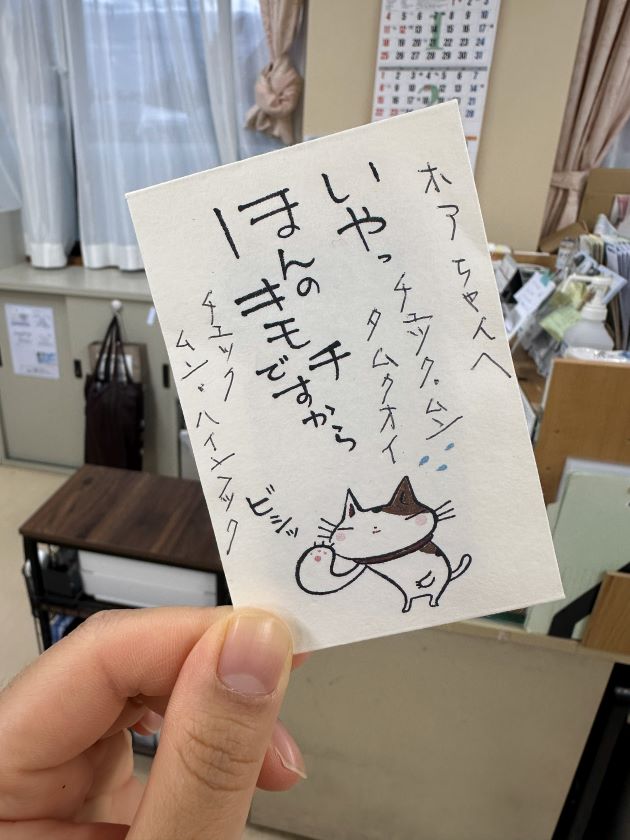 ホアちゃんへ
チュック.ムン
タムクオイ
いやっ
ほんの
キモチ
ですから
チュック
ムン.ハインフック
ビシッ